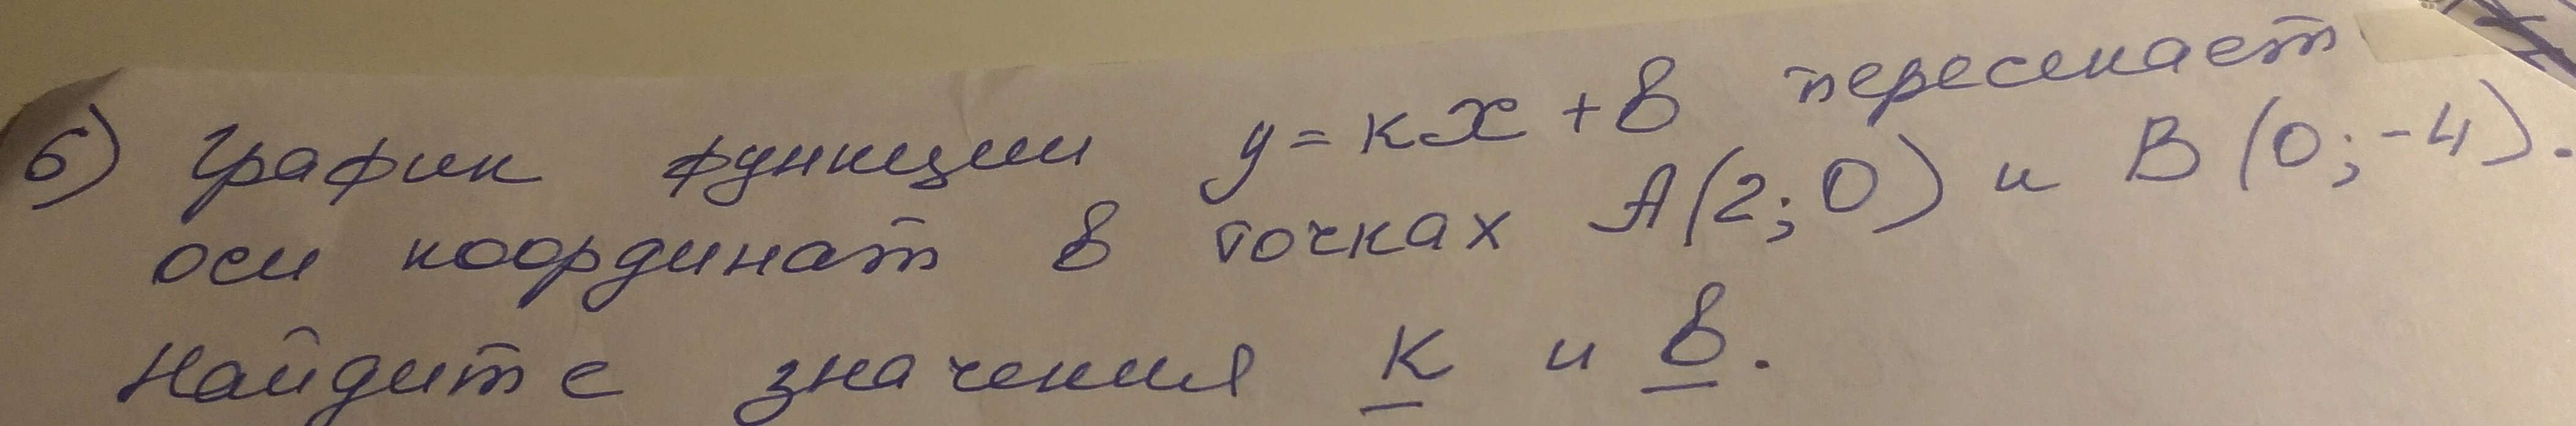 б) График функции y = кx + в пересекает
оси координат в точках А(2; 0) и В(0; -4).
Найдите значения к и в.